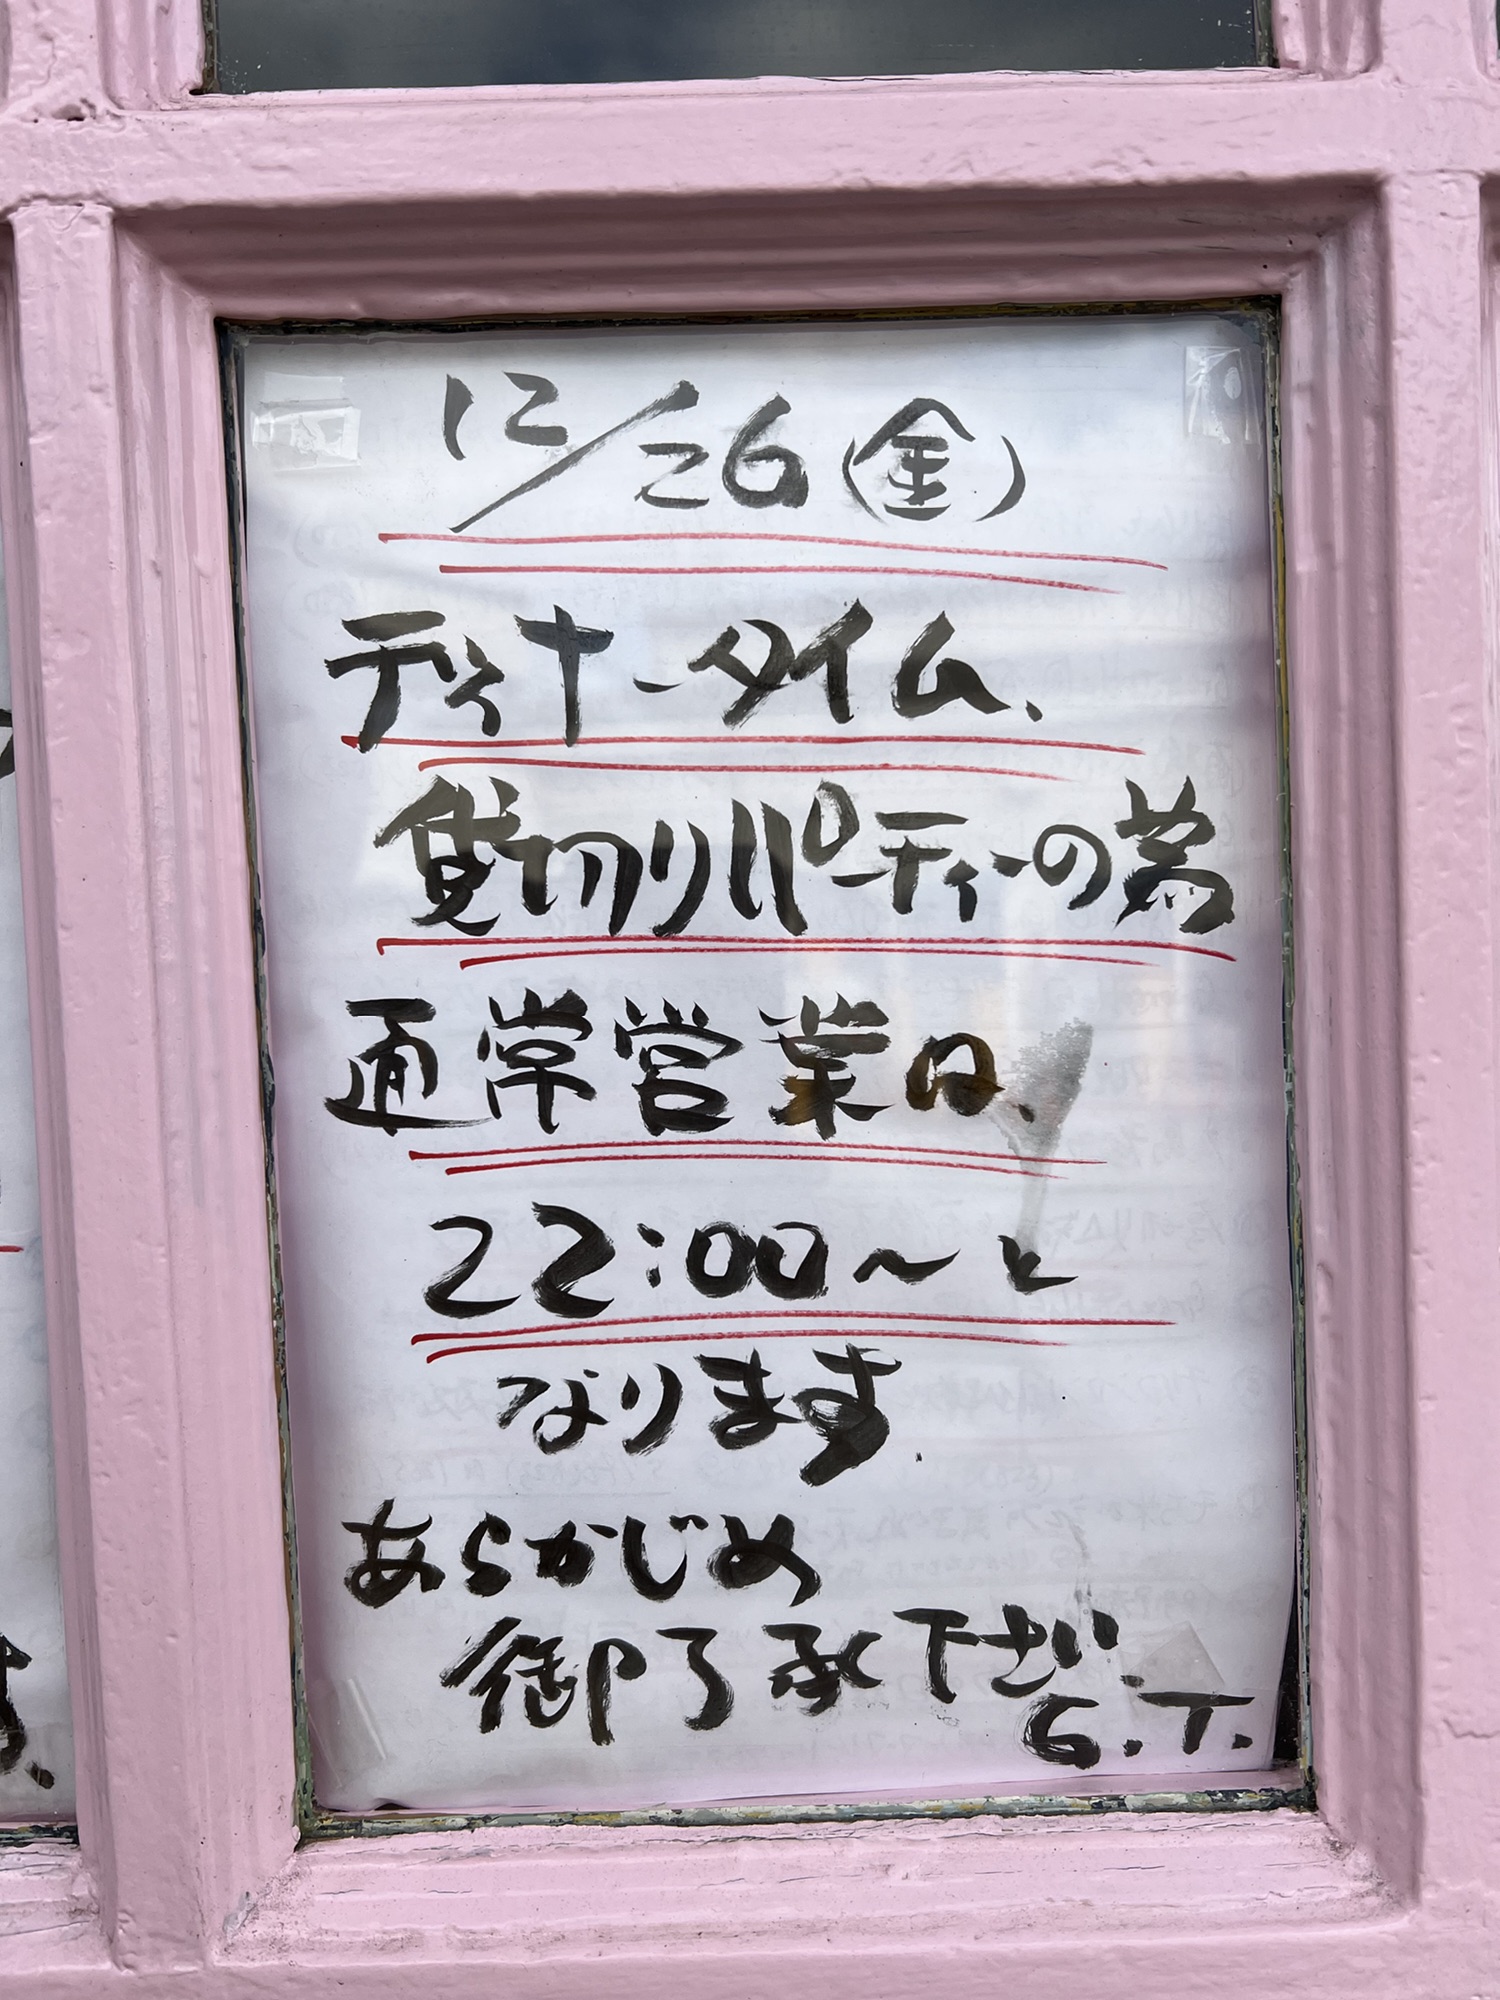 12/26(金)
ディナータイム、
貸切りパーティーの為
通常営業は、
22:00〜と
なります.
あらかじめ
御了承下さい.
G.T.